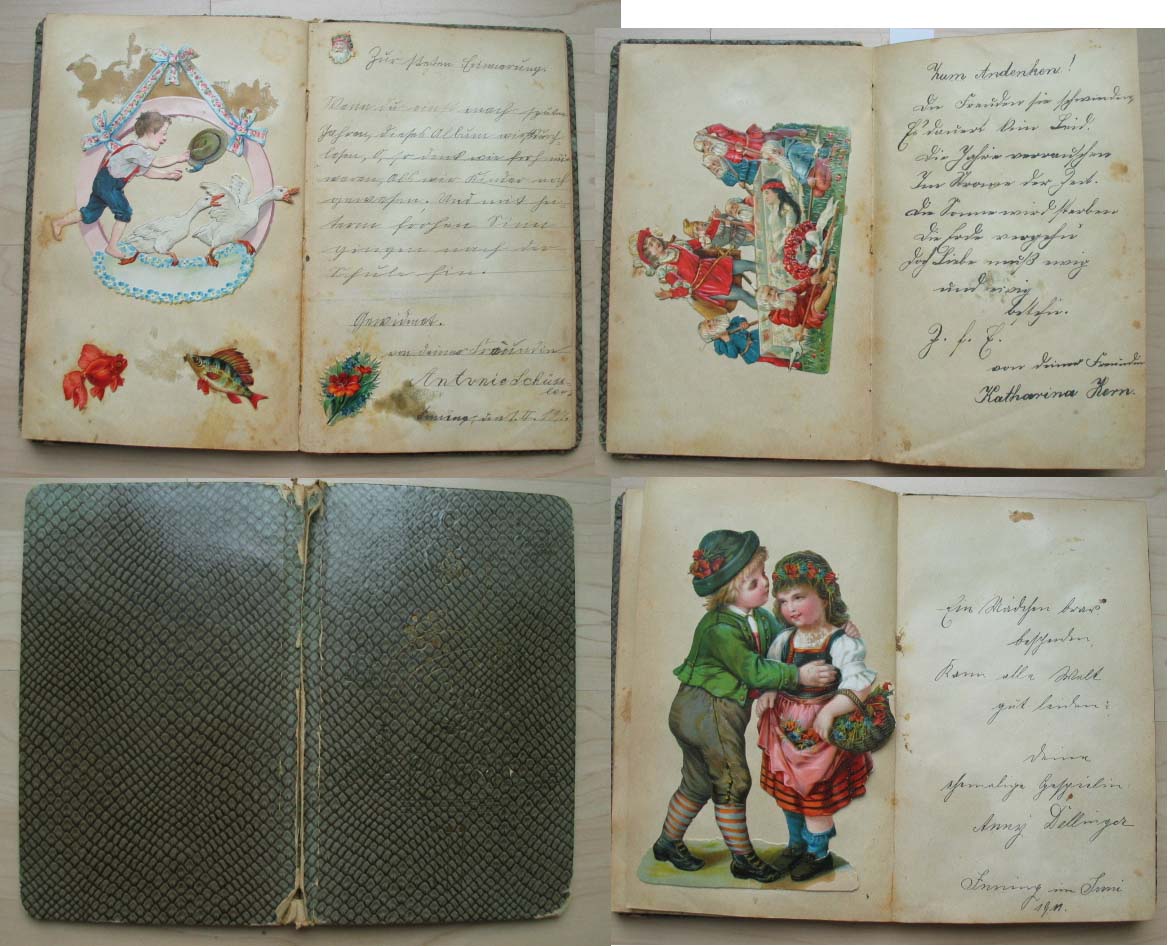 Zur steten Erinnerung.
Wenn du einst nach späten
Jahren, dieses Album wirst durch
lesen, O, so denk wie froh wir
waren, Als wir Kinder noch
gewesen. Und mit hei-
term frohen Sinn
gingen nach der
Schule hin.
Gewidmet.
von deiner Freundin
Antonie Schüss-
ler
Inning, den
Zum Andenken!
Die Freuden sie schwinden
Es dauert kein Leid.
Die Jahre verrauschen
Im Strome der Zeit.
Die Sonne wird sterben
Die Erde vergehn
Doch Liebe muß ewig
und ewig
bestehn.
Z. f. E.
von deiner Freundin
Katharina Kern.
Ein Mädchen brav
bescheiden,
Kann alle Welt
gut leiden:
Deine
ehemalige Gespielin
Anny Dellinger
Inning im Juni
1911.